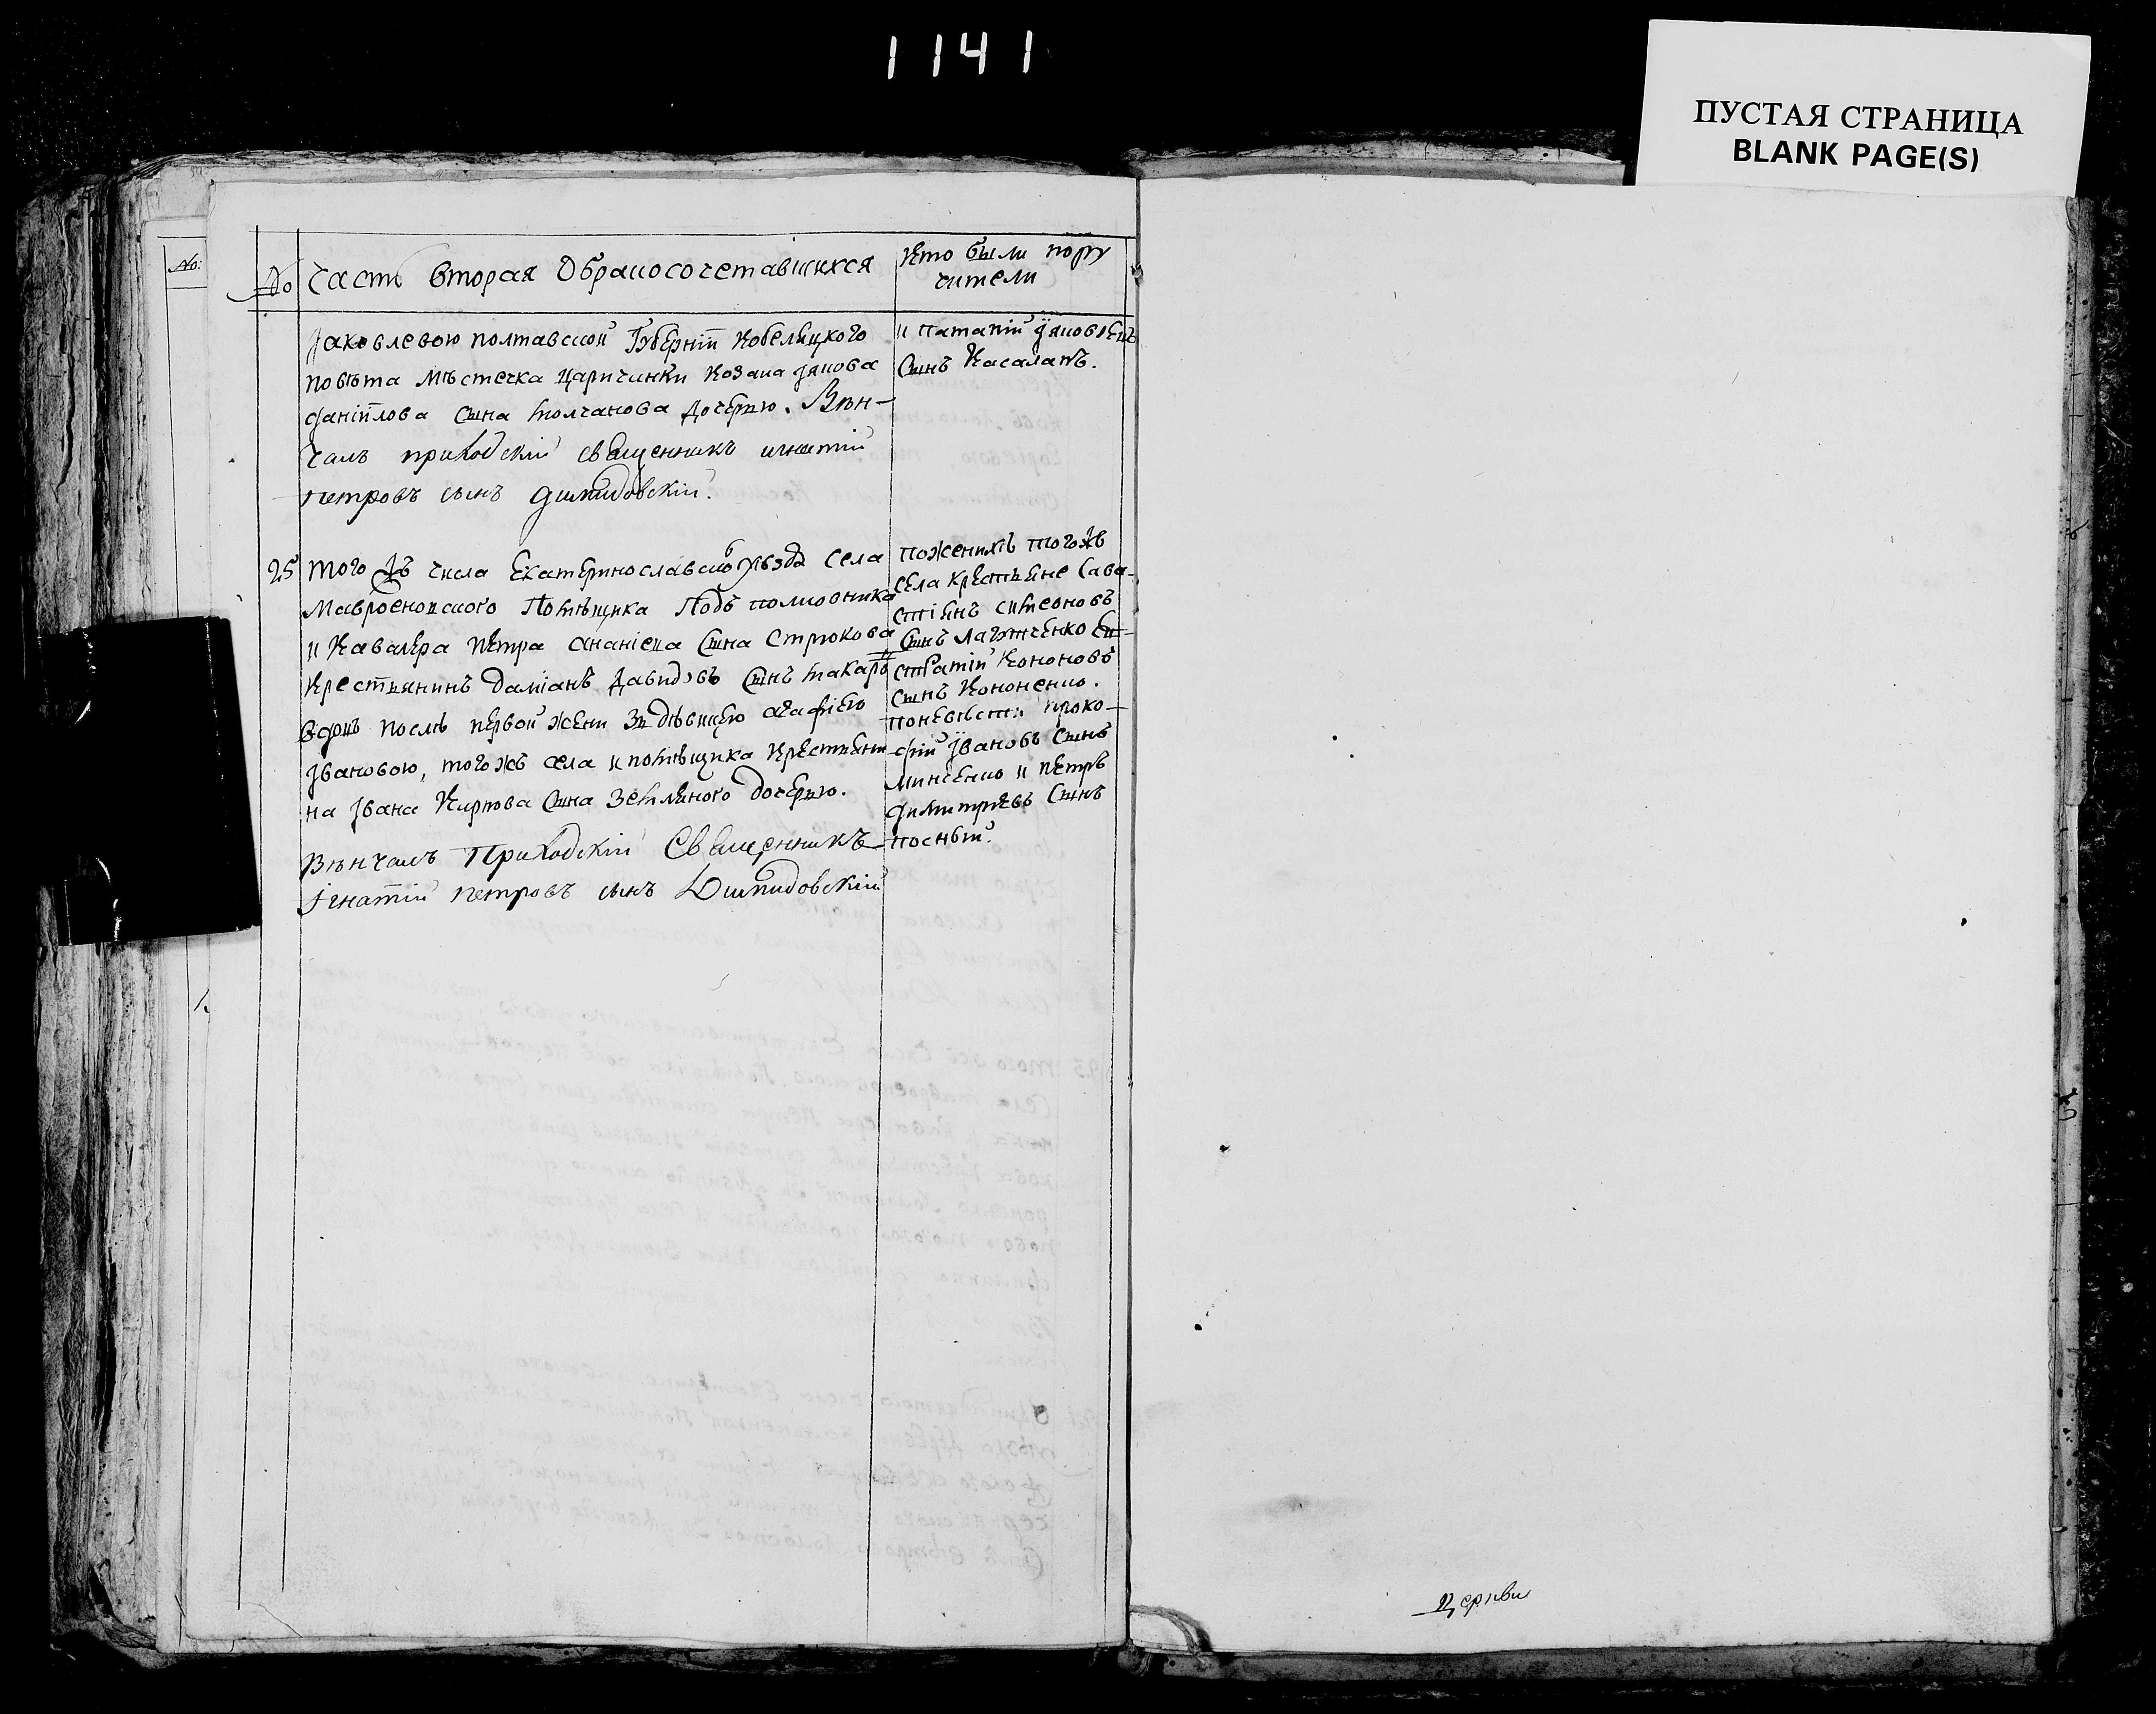 1141
ПУСТАЯ СТРАНИЦА
BLANK PAGE(S)
№:
№ Часть вторая Обракосочетавшихся
Кто были пору
чители
Яковлевою полтавской Губерніи Кобелицкого
повѣта мѣстечка Царичинки Козака Якова
Даніилова Сына Молчанова дочерью. Вѣн-
чалъ приходскій священникъ игнатій
петровъ сынъ
и Патапій Яковлевъ
Сынъ Касалапъ.
25 того жъ числа Екатеринославско уѣзда Села
Мавроенскаго Помѣщика Подъ полковника
и Кавалера Петра Ананіева Сына Строкова
Крестьянинъ Даміанъ Давидовъ Сынъ Макаро
вдовъ послѣ первой жени Зъ дѣвицею Агафіею
Ївановою, того жъ села и помѣщика Крестьяни
на Ївана Карпова Сына Земляного дочерью.
Вѣнчалъ Приходскій Священникъ
Ігнатій петровъ сынъ
поженихѣ тогожъ
села крестьяне Сава-
стіянъ Симеоновъ
Сынъ Ев-
стратій Кононовъ
Сынъ Кононенко.
поневѣсти Проко-
фій Ївановъ Сынъ
Минченко и Петръ
Димитріевъ Сынъ
Посный.
Церкви